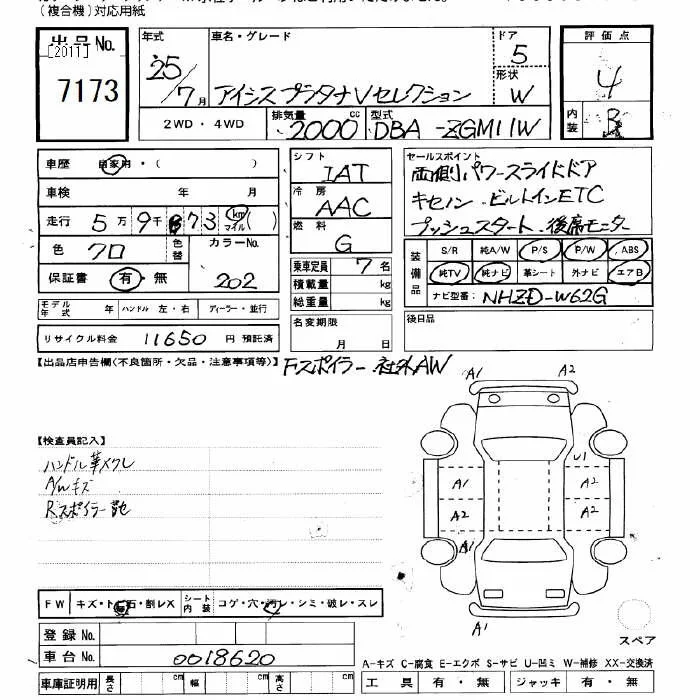 (複合機)対応用紙
出品No.
[2011]
7173
年式
25/7月
車名・グレード
アイシスプラタナVセレクション
ドア
5
形状
W
評価点
4
内装
B
2WD・4WD
排気量
2000cc
型式
DBA-ZGM11W
車歴 自家用・( )
車検 年 月
走行 5万9千873 km マイル( )
色 クロ
色替
カラーNo.
202
保証書 有・無
モデル年式 年 ハンドル 左・右 ディーラー・並行
リサイクル料金 11650 円 預託済
シフト
IAT
冷房
AAC
燃料
G
乗車定員 7名
積載量 kg
総重量 kg
名変期限
月 日
セールスポイント
両側パワースライドドア
キセノン・ビルトインETC
プッシュスタート・後席モニター
装備品
S/R 純A/W P/S P/W ABS
純TV 純ナビ 革シート 外ナビ エアB
ナビ型番: NHZD-W62G
後日品
【出品店申告欄(不良箇所・欠品・注意事項等)】 Fスポイラー 社外AW
【検査員記入】
ハンドル革メクレ
A/Wキズ
Rスポイラー
A1
A2
U1
A1
A2
A2
A2
A1
A1
A1
スペア
FW キズ・ト石・割レX
シート内装 コゲ・穴・汚レ・シミ・破レ・スレ
登録No.
車台No. 0018620
車庫証明用 長さ cm 幅 cm 高さ cm
A-キズ C-腐食 E-エクボ S-サビ U-凹ミ W-補修 XX-交換済
工具 有・無 ジャッキ 有・無